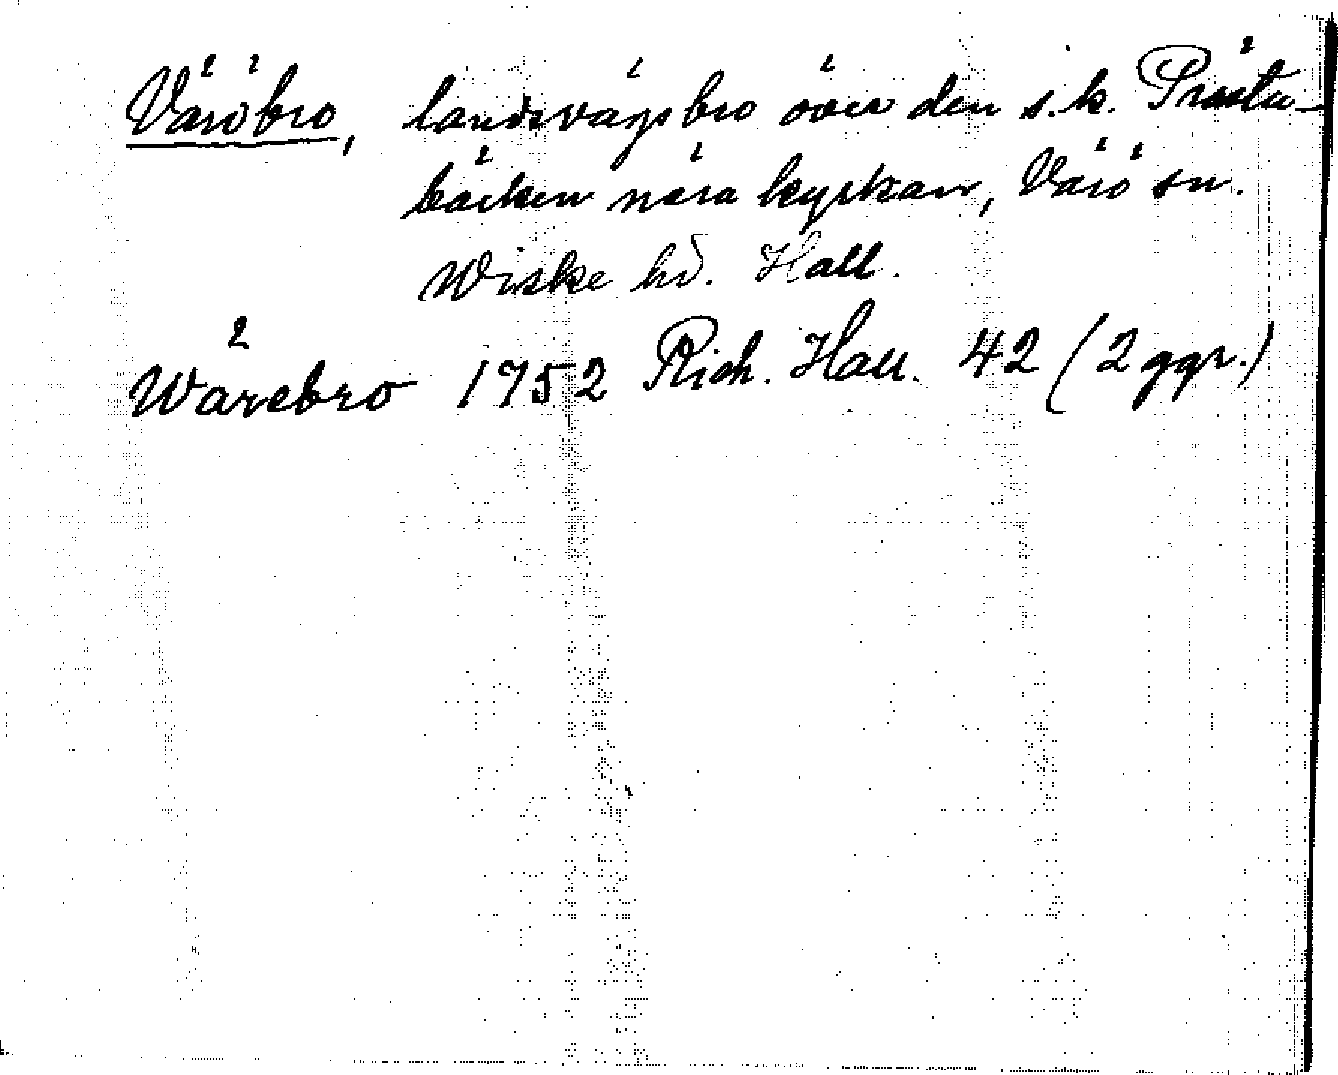 Väröbro, landsvägsbro över den s.k. Prästa-
bäcken nära kyrkan, Värö sn.
Wiske hd. Hall.
Wärebro 1752 Rich. Hall. 42 (2 ggr.)